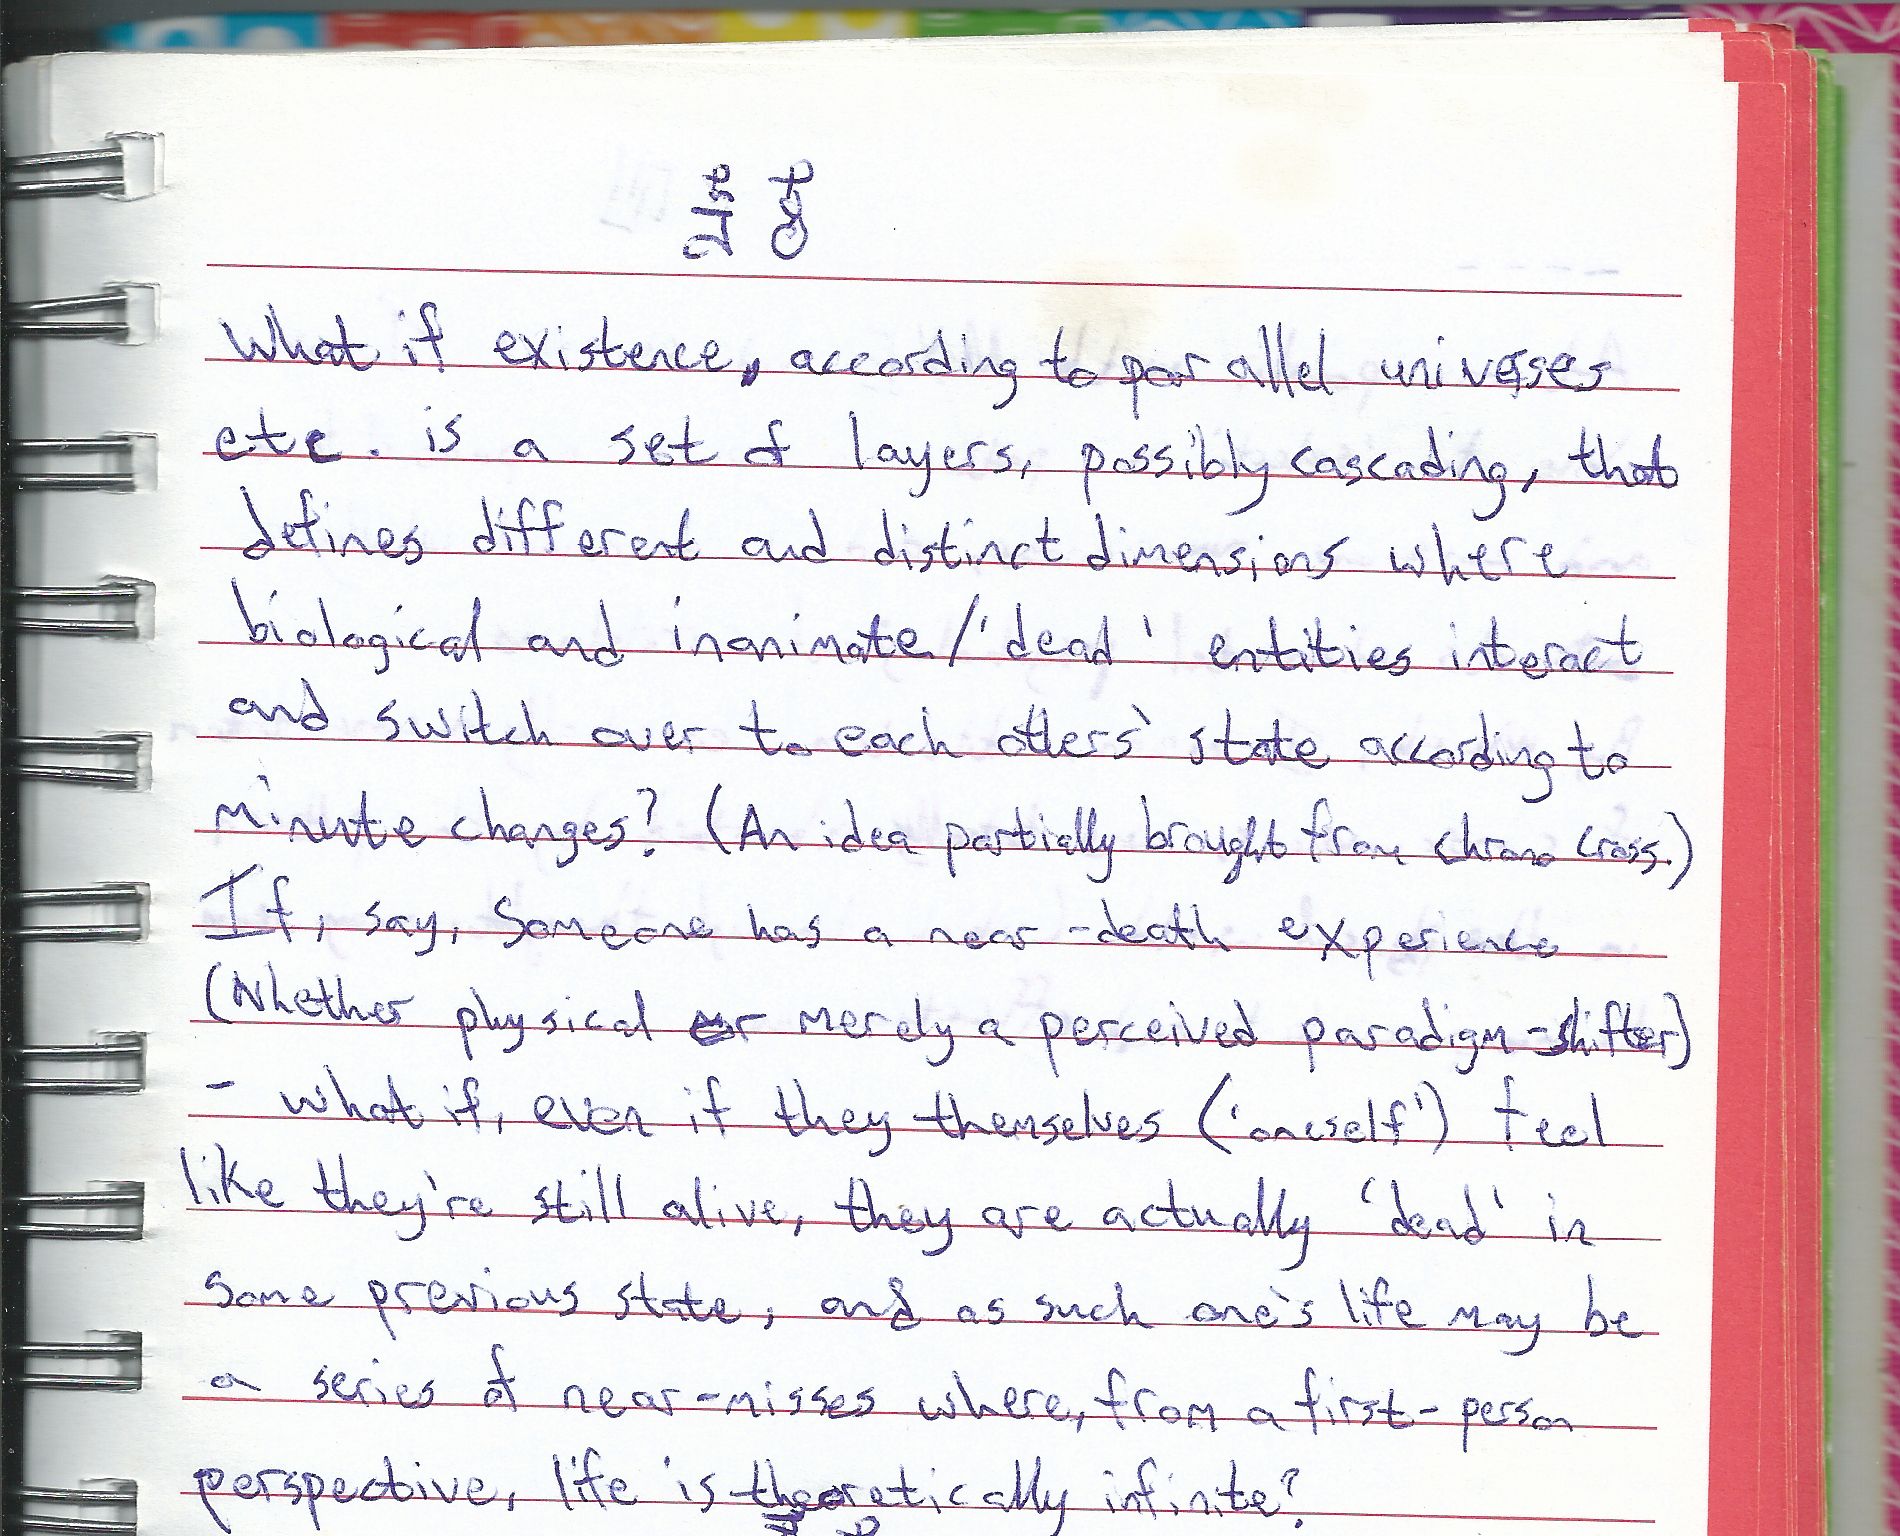 What if existence, according to parallel universes
etc. is a set of layers, possibly cascading, that
defines different and distinct dimensions where
biological and inanimate/'dead' entities interact
and switch over to each others' state according to
minute changes? (An idea partially brought from Chrono Cross.)
If, say, someone has a near-death experience
(Whether physical or merely a perceived paradigm-shifter)
- what if, even if they themselves ('oneself') feel
like they're still alive, they are actually 'dead' in
some previous state, and as such one's life may be
a series of near-misses where, from a first-person
perspective, life is theoretically infinite?